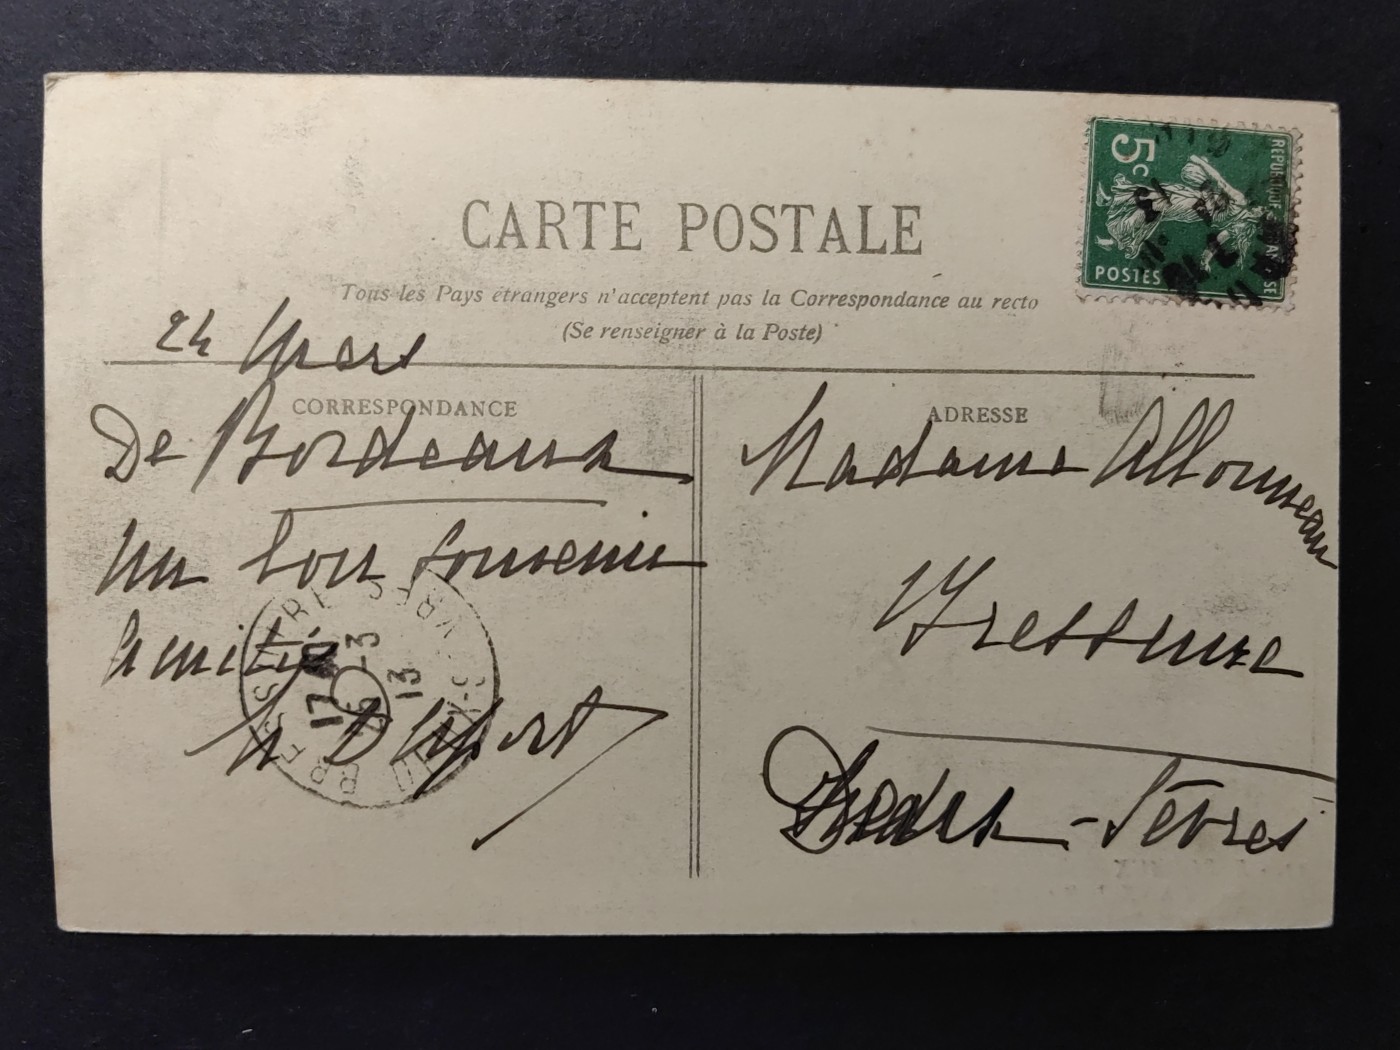 CARTE POSTALE
Tous les Pays étrangers n'acceptent pas la Correspondance au recto
(Se renseigner à la Poste)
5c
REPUBLIQUE FRANCAISE
POSTES
24 Mars
CORRESPONDANCE
De Bordeaux
un bon souvenir
d'amitié
ADRESSE
Madame Allonneau
Bressuire
Deux-Sèvres
BRESSUIRE
DEUX-SEVRES
17
-3
13